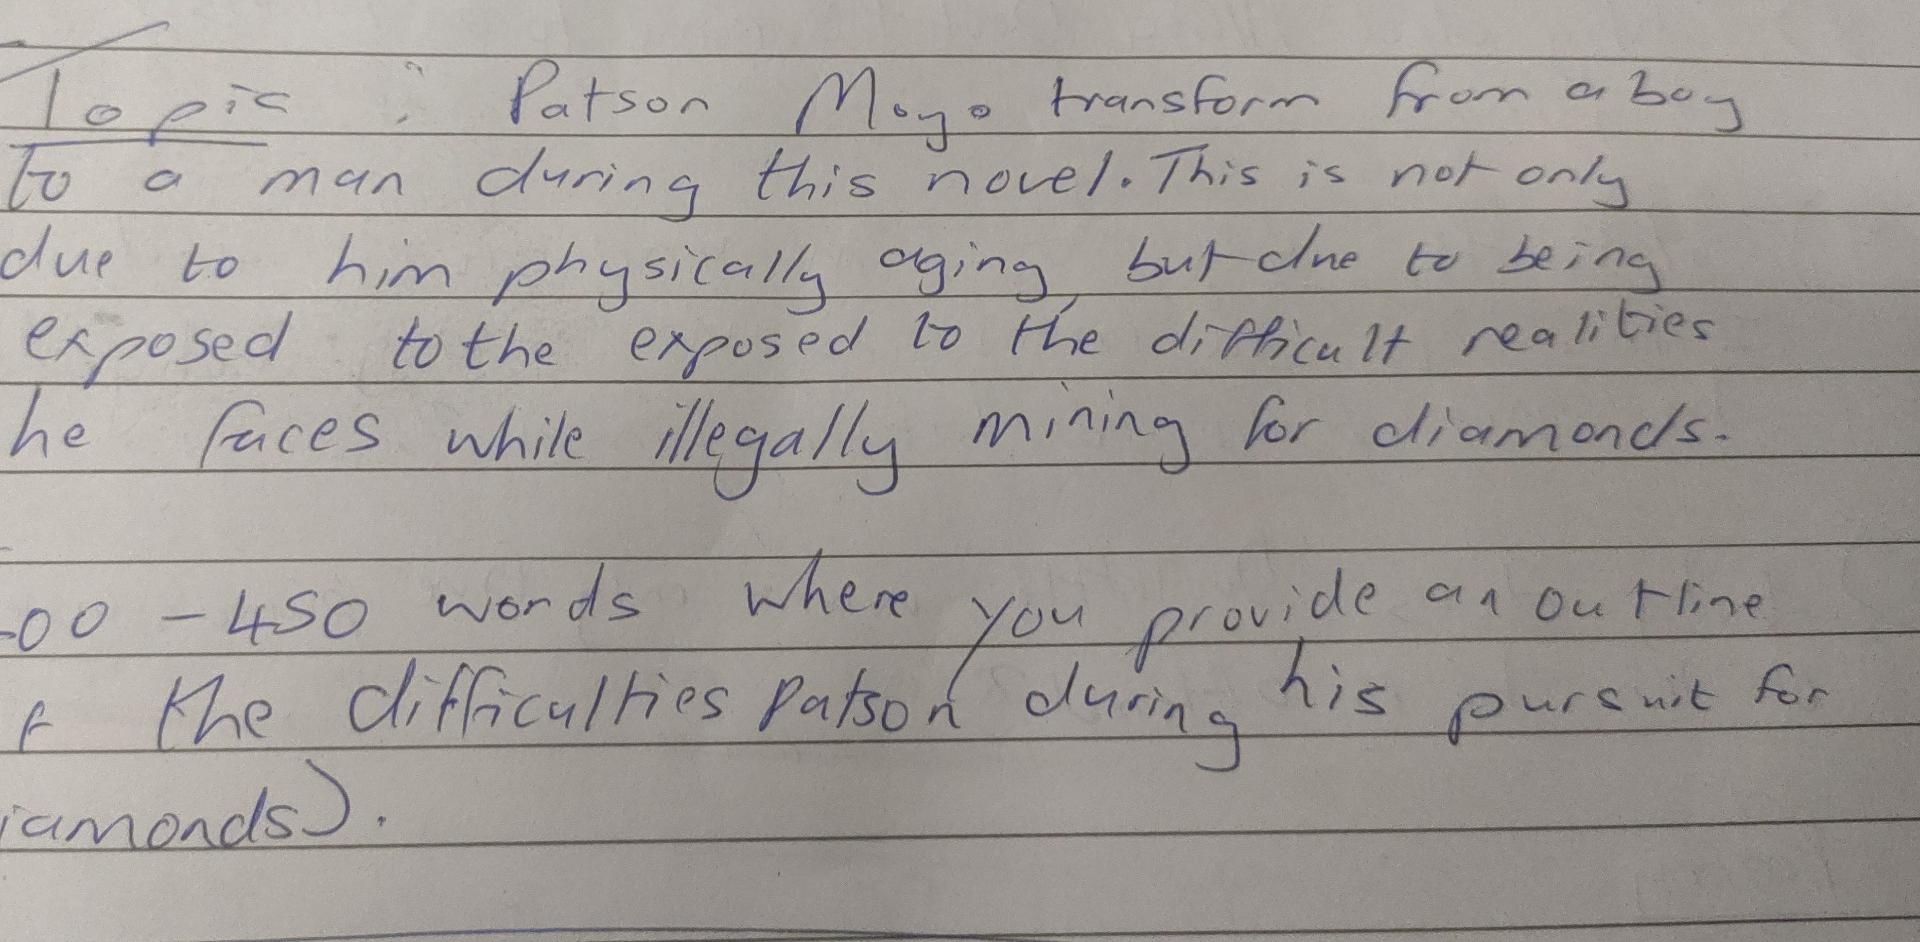 Topic : Patson Moyo transform from a boy
to a man during this novel. This is not only
due to him physically aging, but due to being
exposed to the exposed to the difficult realities
he faces while illegally mining for diamonds.
00 - 450 words where you provide an outline
f the difficulties Patson during his pursuit for
iamonds).